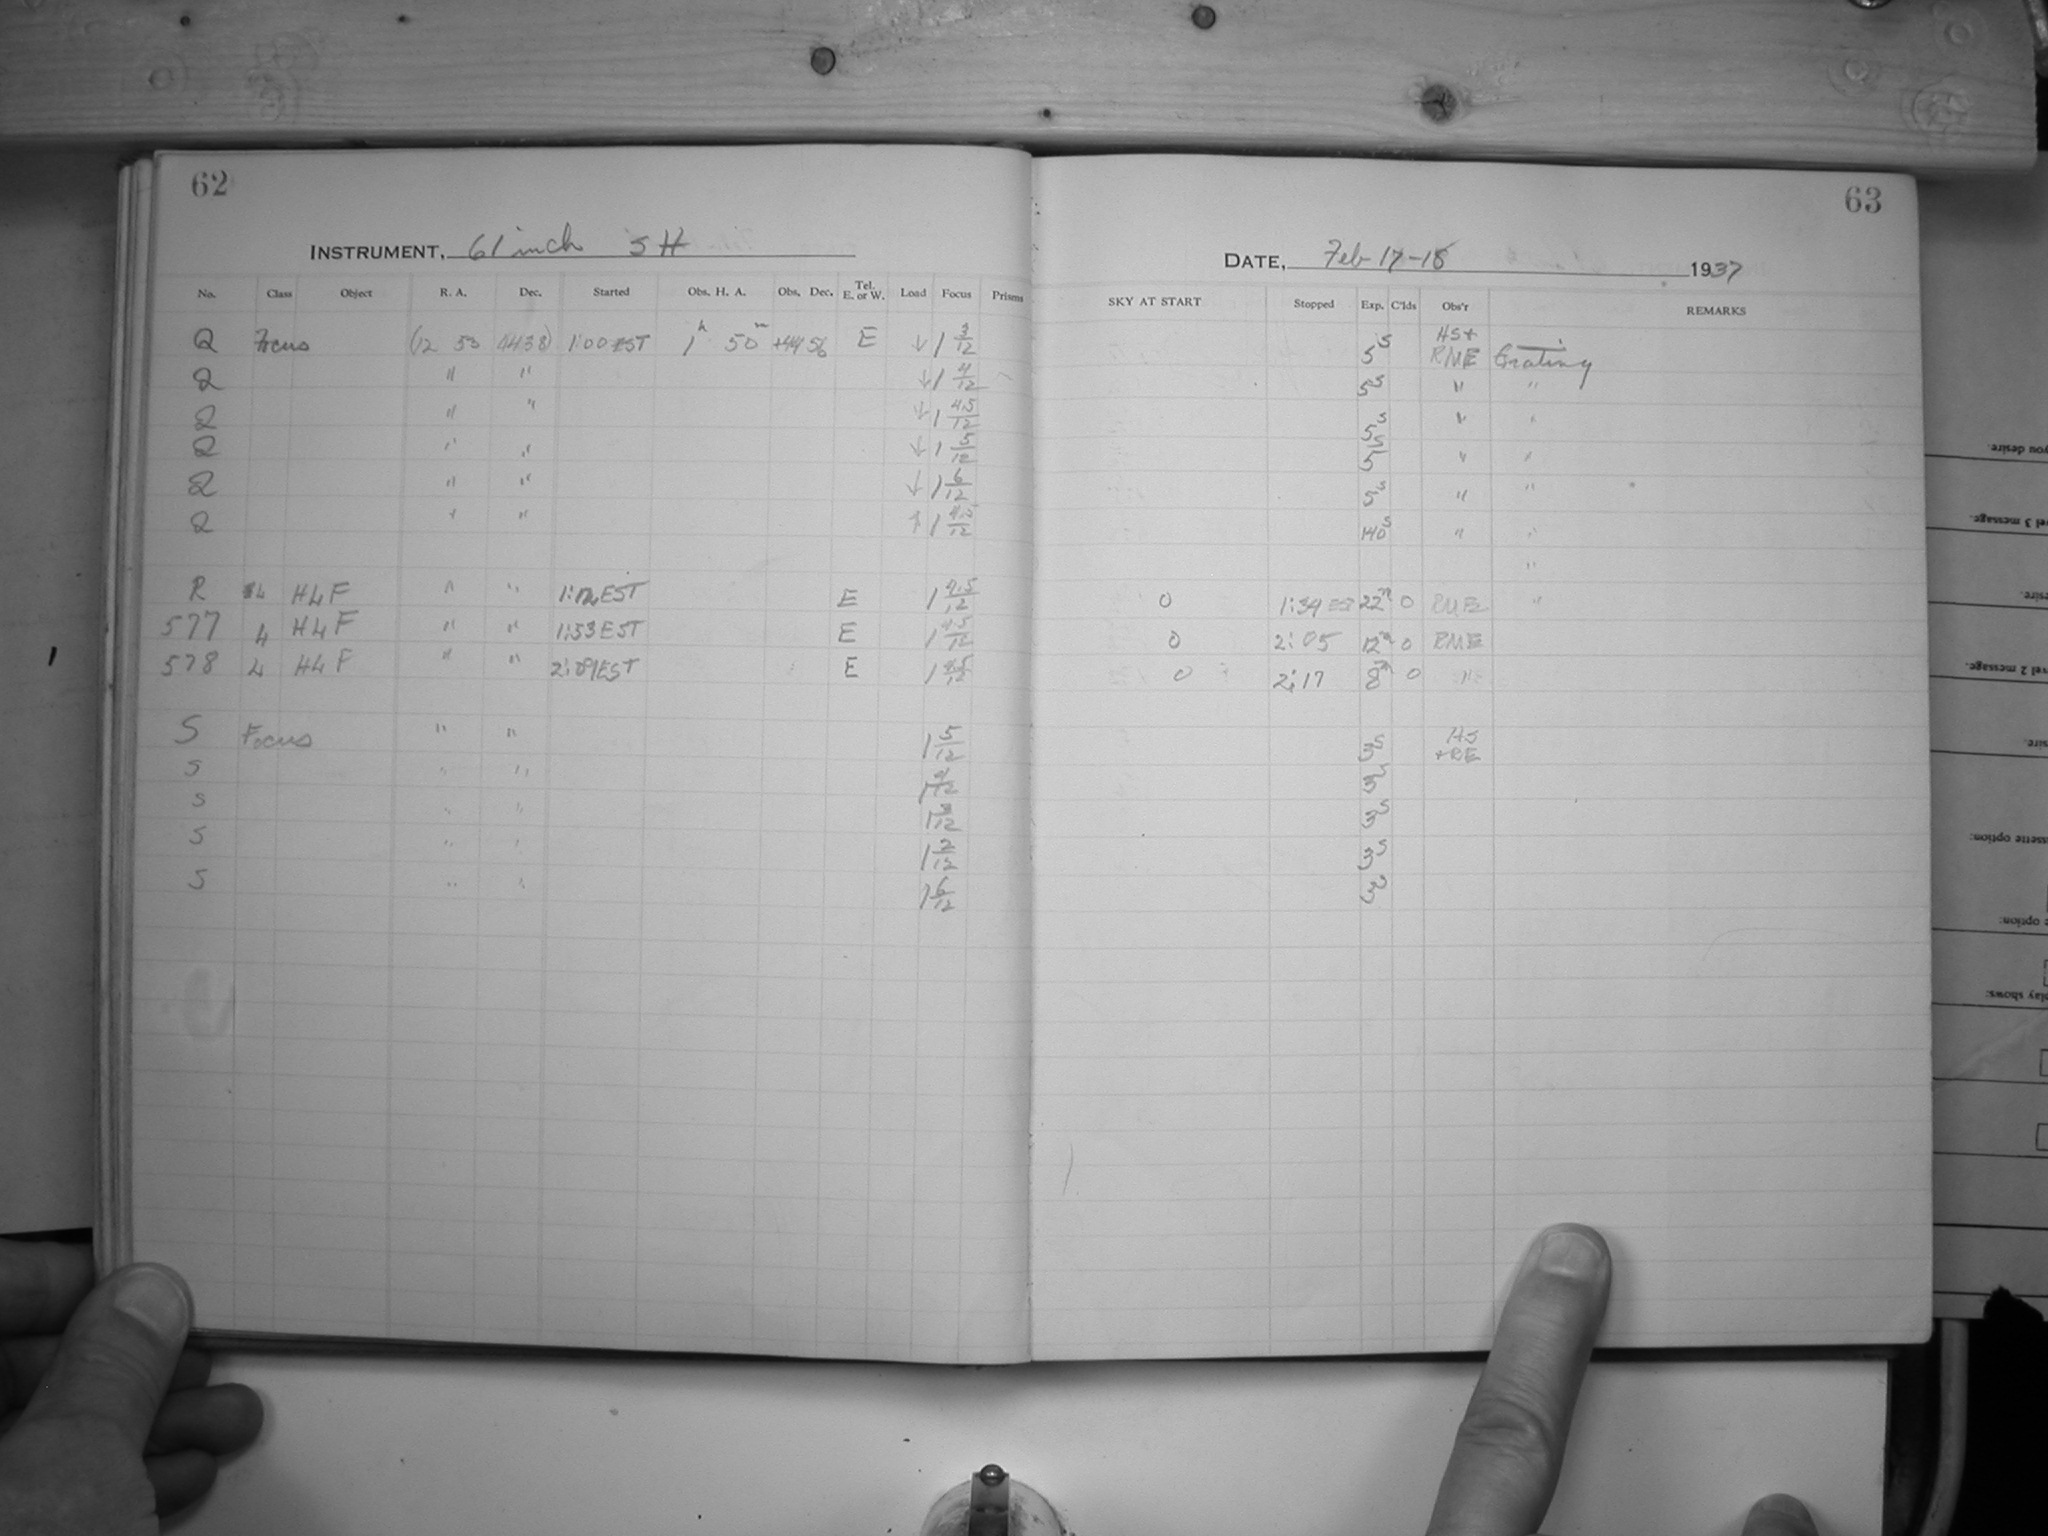 62
INSTRUMENT, 61 inch SH
No. Class Object R. A. Dec. Started Obs. H. A. Obs. Dec. Tel. E. or W. Load Focus Prisms
Q Focus (12 53 4438) 1:00 EST 1h 50m +44 56 E ↓ 1 3/12
Q " " ↓ 1 4/12
Q " " ↓ 1 4.5/12
Q " " ↓ 1 5/12
Q " " ↓ 1 6/12
Q " " ↑ 1 4.5/12
R 4 H4F " " 1:12 EST E 1 4.5/12
577 4 H4F " " 1:53 EST E 1 4.5/12
578 4 H4F " " 2:09 EST E 1 4.5/12
S Focus " " 1 5/12
S " " 1 4/12
S " " 1 3/12
S " " 1 2/12
S " " 1 6/12
63
DATE, Feb 17-18 1937
SKY AT START Stopped Exp. C'lds Obs'r REMARKS
5s HS+ RME Grating
5s " "
5s " "
5s " "
5s " "
140s " "
"
0 1:34 EST 22m 0 RME "
0 2:05 12m 0 RME
0 2:17 8m 0 "
3s HS +RE
3s
3s
3s
3s
you desire.
vel 3 message.
sire.
vel 2 message.
sire.
ssette option:
e option:
play shows: